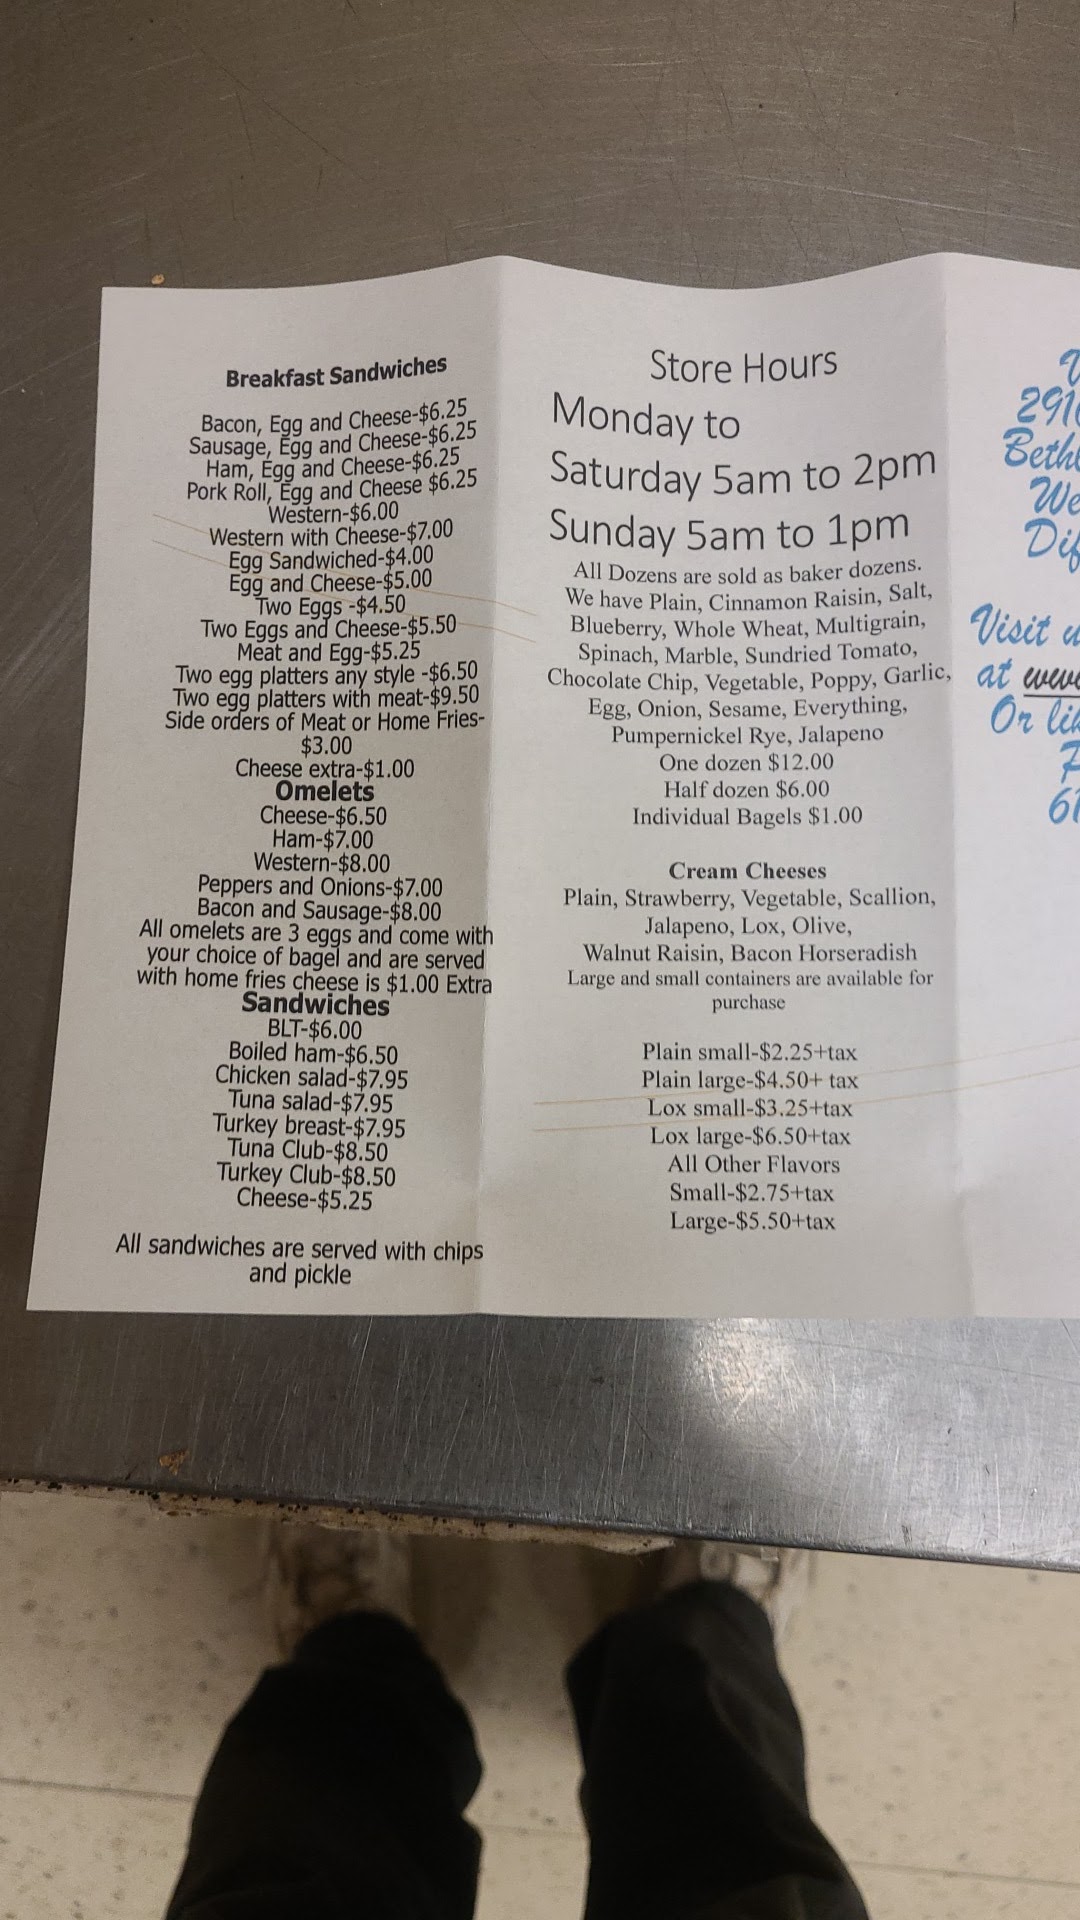 Breakfast Sandwiches
Bacon, Egg and Cheese-$6.25
Sausage, Egg and Cheese-$6.25
Ham, Egg and Cheese-$6.25
Pork Roll, Egg and Cheese $6.25
Western-$6.00
Western with Cheese-$7.00
Egg Sandwiched-$4.00
Egg and Cheese-$5.00
Two Eggs -$4.50
Two Eggs and Cheese-$5.50
Meat and Egg-$5.25
Two egg platters any style -$6.50
Two egg platters with meat-$9.50
Side orders of Meat or Home Fries-
$3.00
Cheese extra-$1.00
Omelets
Cheese-$6.50
Ham-$7.00
Western-$8.00
Peppers and Onions-$7.00
Bacon and Sausage-$8.00
All omelets are 3 eggs and come with
your choice of bagel and are served
with home fries cheese is $1.00 Extra
Sandwiches
BLT-$6.00
Boiled ham-$6.50
Chicken salad-$7.95
Tuna salad-$7.95
Turkey breast-$7.95
Tuna Club-$8.50
Turkey Club-$8.50
Cheese-$5.25
All sandwiches are served with chips
and pickle
Store Hours
Monday to
Saturday 5am to 2pm
Sunday 5am to 1pm
All Dozens are sold as baker dozens.
We have Plain, Cinnamon Raisin, Salt,
Blueberry, Whole Wheat, Multigrain,
Spinach, Marble, Sundried Tomato,
Chocolate Chip, Vegetable, Poppy, Garlic,
Egg, Onion, Sesame, Everything,
Pumpernickel Rye, Jalapeno
One dozen $12.00
Half dozen $6.00
Individual Bagels $1.00
Cream Cheeses
Plain, Strawberry, Vegetable, Scallion,
Jalapeno, Lox, Olive,
Walnut Raisin, Bacon Horseradish
Large and small containers are available for
purchase
Plain small-$2.25+tax
Plain large-$4.50+ tax
Lox small-$3.25+tax
Lox large-$6.50+tax
All Other Flavors
Small-$2.75+tax
Large-$5.50+tax
291
Beth
We
Dif
Visit u
at www
Or lik
61